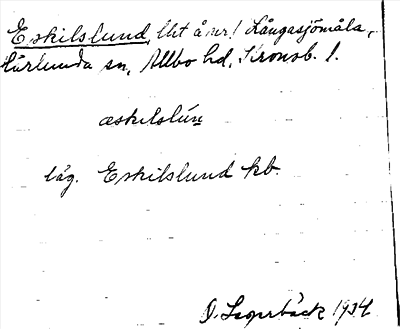 Eskilslund, lht å nr 1 Långasjömåla,
Härlunda sn, Allbo hd, Kronob. l.
æskilslún
låg. Eskilslund kb.
O. Lagerbäck 1934